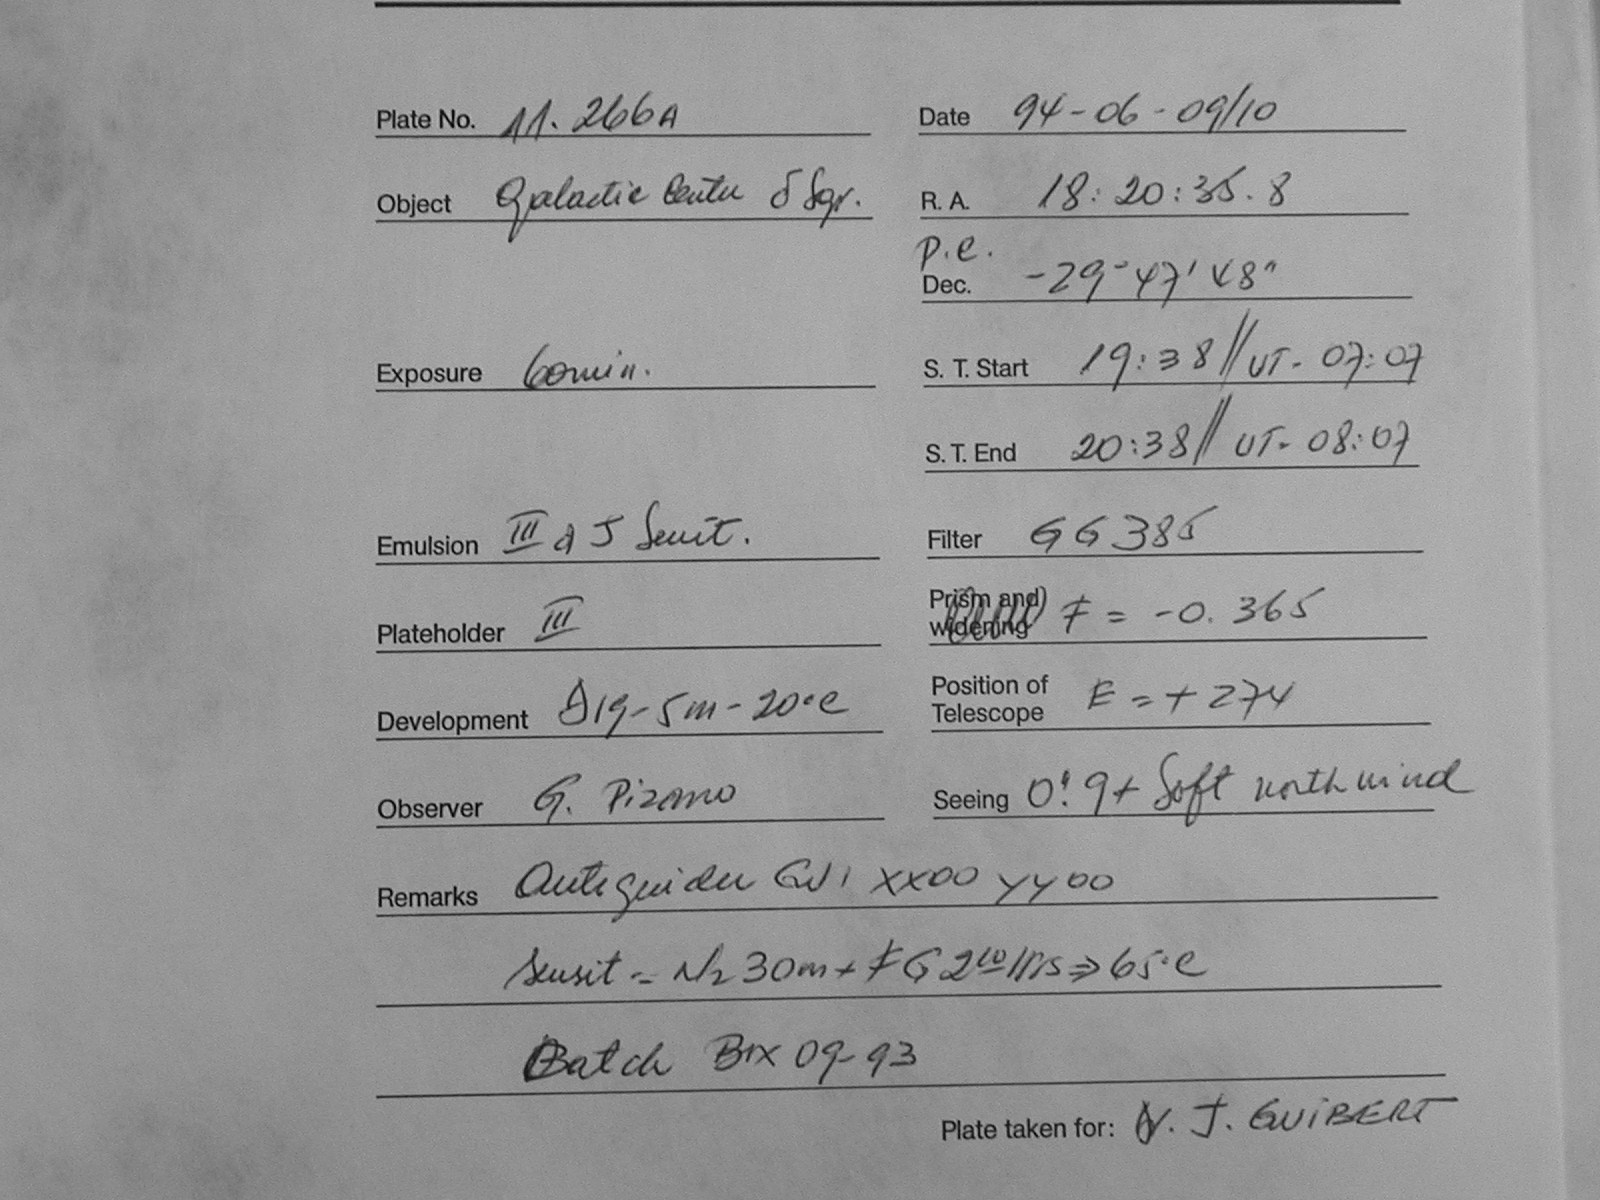 Plate No. 11.266A Date 94-06-09/10
Object Galactic Center δ Sgr. R. A. 18:20:35.8
p.e.
Dec. -29°47'48"
Exposure 60min. S. T. Start 19:38 // UT- 07:07
S. T. End 20:38 // UT- 08:07
Emulsion III a J Sensit. Filter GG385
Plateholder III Prism and widening F = -0.365
Development D19-5m-20°C Position of Telescope E = + 274
Observer G. Pizarro Seeing 0".9+ Soft north wind
Remarks Autoguider XX00 YY00
Sensit = N2 30m + FG 2 Hrs ⇒ 65°C
Batch 09-93
Plate taken for: J. GUIBERT